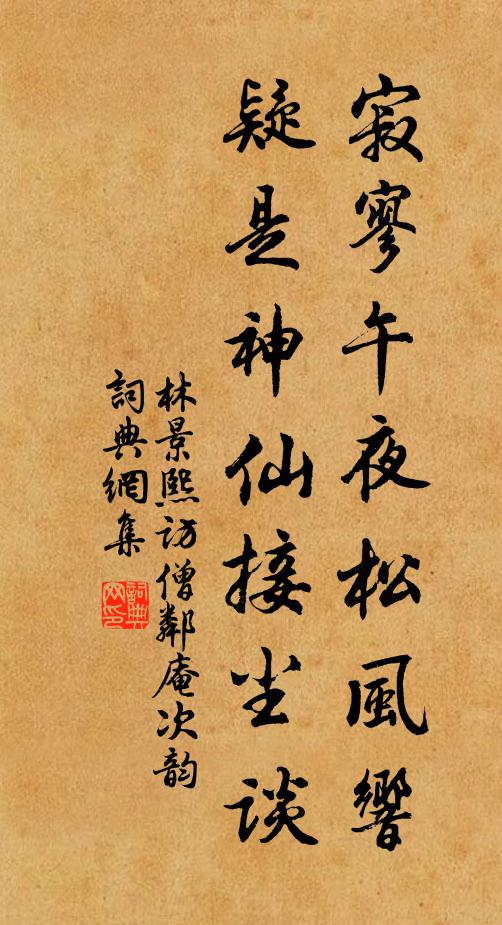 寂寥午夜松風響
疑是神仙接坐談
林景熙訪僧鄰庵次韵
詞典網集
詞典
网印